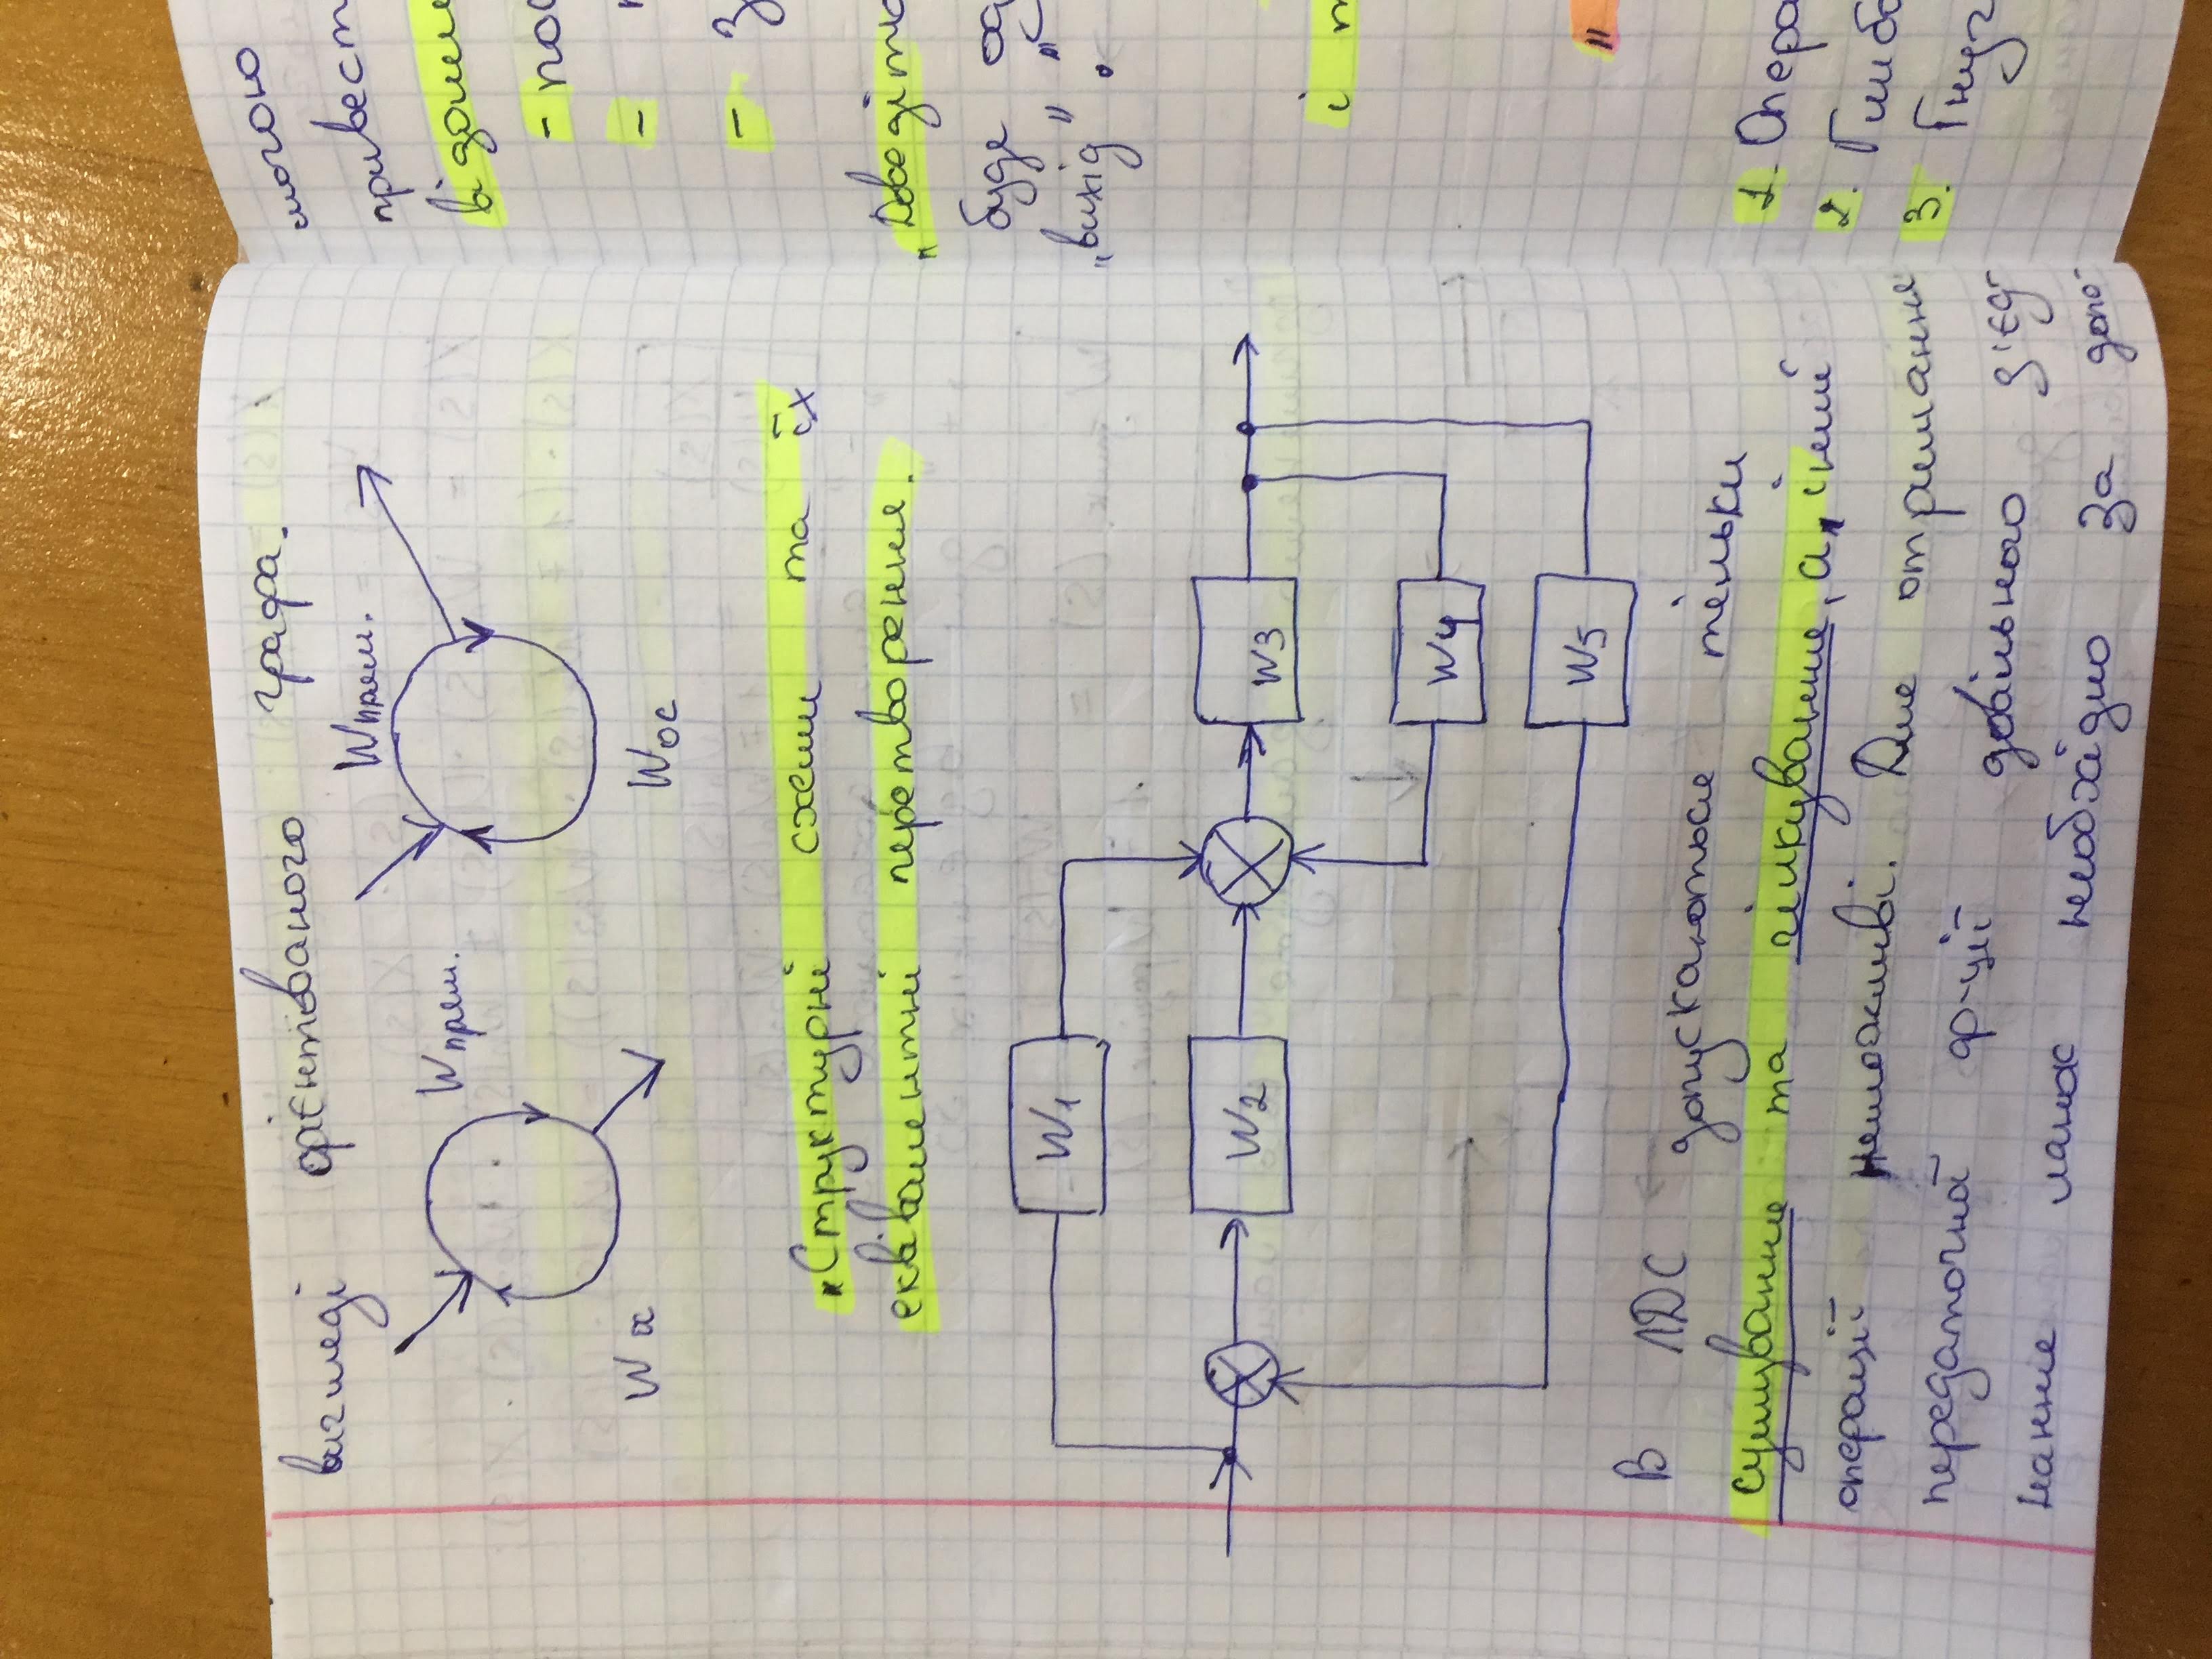 вигляді орієнтованого графа.
Wпрям.
Wпрям.
Wос
"Структурні схеми та їх
еквівалентні перетворення.
W1
W2
W3
W4
W5
В ЛДС допускаються тільки
сумування та гілкування, а інші
операції неможливі. Для отримання
передаточної ф-ції довільного з'єд-
нання ланок необхідно за допо-
могою
привест
відоми
- пос
-
- з
"Доведіть
буде од
"вихід".
і т
"
1. Опера
2. Глиб
3. Гнуч